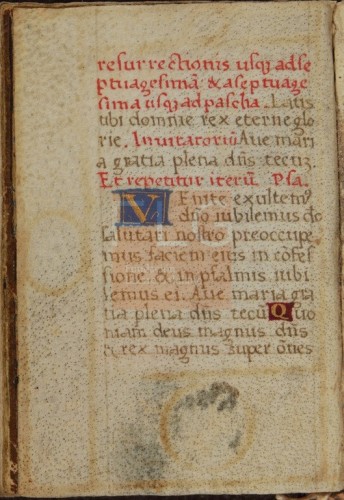 resurrectionis usq; ad se
ptuagesimã & a septuage
sima usq; ad pascha. Laus
tibi domine rex eterne glo
rie. Inuitatoriũ Aue mari
a gratia plena dñs tecũ.
Et repetitur iterũ. Psa.
Venite exultemꝰ
dño iubilemus do
salutari nostro preoccupe
mus faciem eius in cõfes
sione & in psalmis iubi
lemus ei. Aue maria gra
tia plena dñs tecũ Quo
niam deus magnus dñs
& rex magnus super oẽs